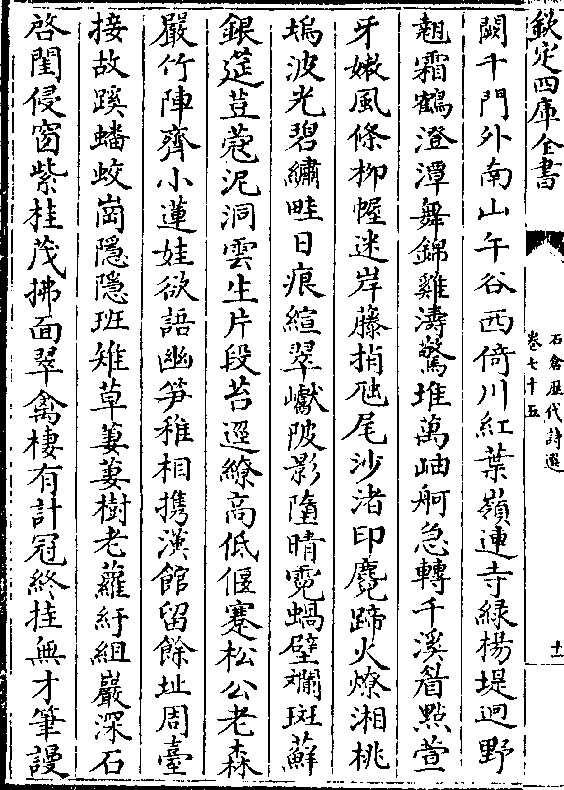 欽定四庫全書
石倉歷代詩選
卷七十五
十一
闕千門外南山午谷西倚川紅葉嶺連寺綠楊堤迥野
翹霜鶴澄潭舞錦雞濤驚堆萬岫舸急轉千溪眉點萱
牙嫩風條柳幄迷岸藤梢虺尾沙渚印麑蹄火燎湘桃
塢波光碧繡畦日痕絙翠巘陂影墮晴霓蝸壁斕斑蘚
銀筵荳蔻泥洞雲生片段苔逕繚高低偃蹇松公老森
嚴竹陣齊小蓮娃欲語幽笋稚相攜漢館留餘址周臺
接故蹊蟠蛟崗隱隱班雉草萋萋樹老蘿紆組巖深石
啓閨侵窗紫桂茂拂面翠禽棲有計冠終挂無才筆謾